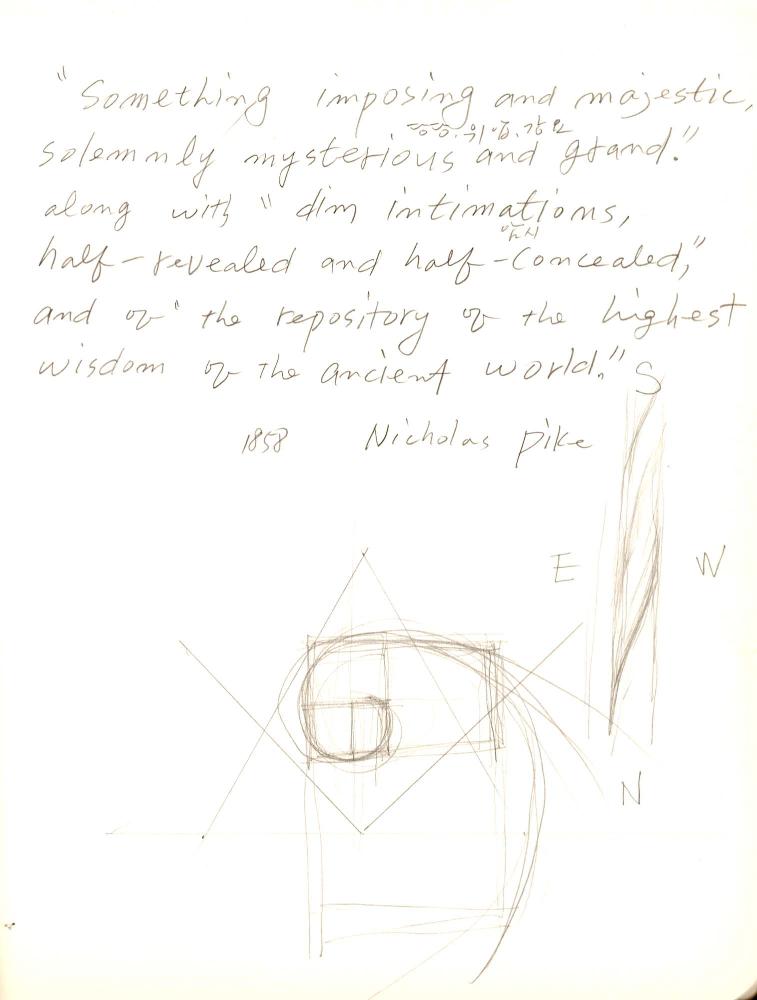 "Something imposing and majestic,
solemnly mysterious and grand."
along with "dim intimations,
암시
half-revealed and half-concealed,"
and of "the repository of the highest
wisdom of the ancient world."
1858 Nicholas pike
S
E W
N